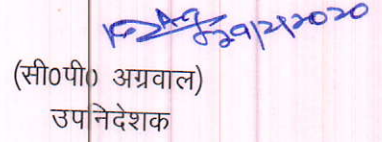 29/2/2020
(सी0पी0 अग्रवाल)
उपनिदेशक